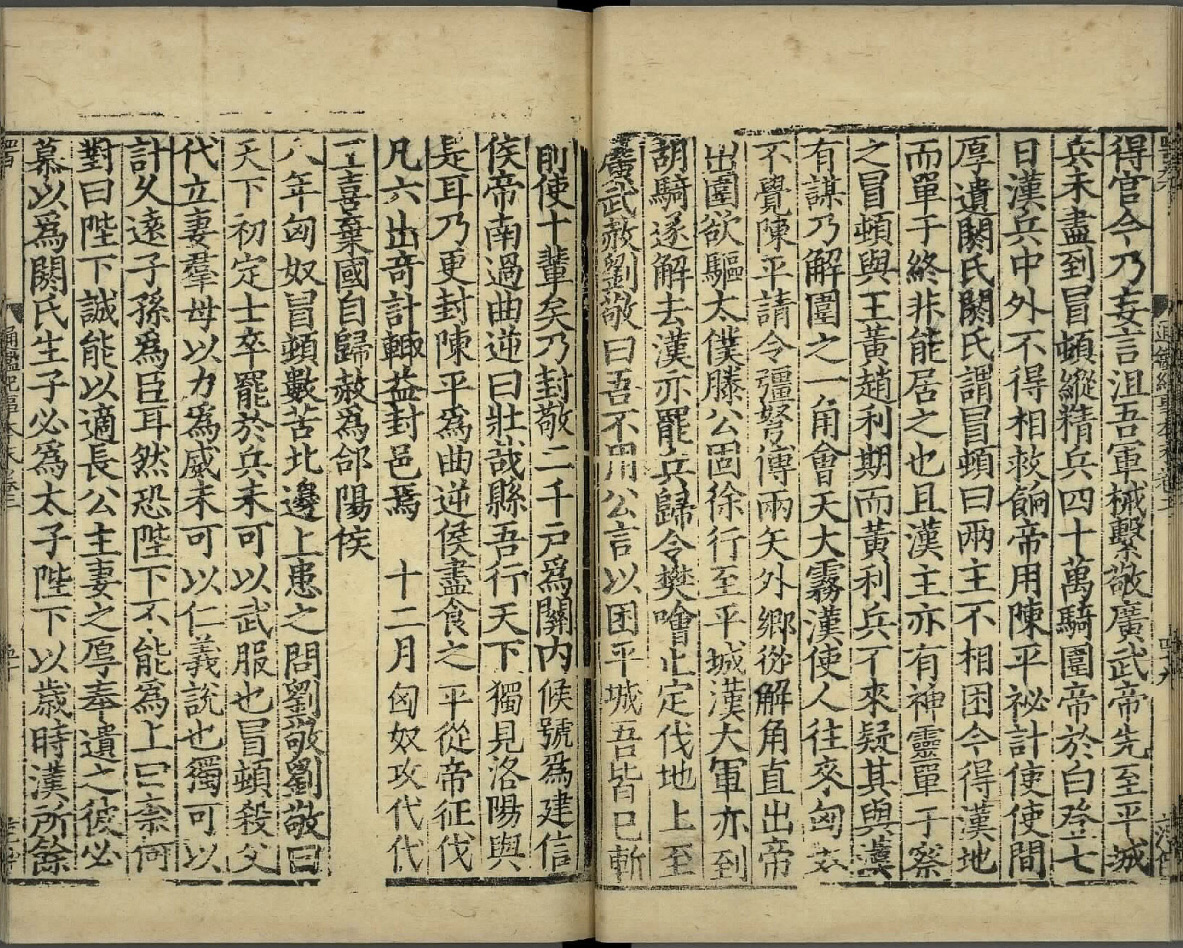 得官今乃妄言沮吾軍械繫敬廣武帝先至平城
兵未盡到冒頓縱精兵四十萬騎圍帝於白登七
日漢兵中外不得相救餉帝用陳平祕計使使間
厚遺閼氏閼氏謂冒頓曰兩主不相困今得漢地
而單于終非能居之也且漢主亦有神靈單于察
之冒頓與王黃趙利期而黃利兵不來疑其與漢
有謀乃解圍之一角會天大霧漢使人往來匈奴
不覺陳平請令彊弩傅兩矢外鄉從解角直出帝
出圍欲驅太僕滕公固徐行至平城漢大軍亦到
胡騎遂解去漢亦罷兵歸令樊噲止定代地上至
廣武赦劉敬曰吾不用公言以困平城吾皆已斬
前使十輩矣乃封敬二千戶爲關内侯號爲建信
侯帝南過曲逆曰壯哉縣吾行天下獨見洛陽與
是耳乃更封陳平爲曲逆侯盡食之平從帝征伐
凡六出奇計輒益封邑焉　十二月匈奴攻代代
王喜棄國自歸赦爲郃陽侯
八年匈奴冒頓數苦北邊上患之問劉敬劉敬曰
天下初定士卒罷於兵未可以武服也冒頓殺父
代立妻羣母以力爲威未可以仁義說也獨可以
計久遠子孫爲臣耳然恐陛下不能爲上曰柰何
對曰陛下誠能以適長公主妻之厚奉遺之彼必
慕以爲閼氏生子必爲太子陛下以歲時漢所餘
通鑑紀事本末卷二